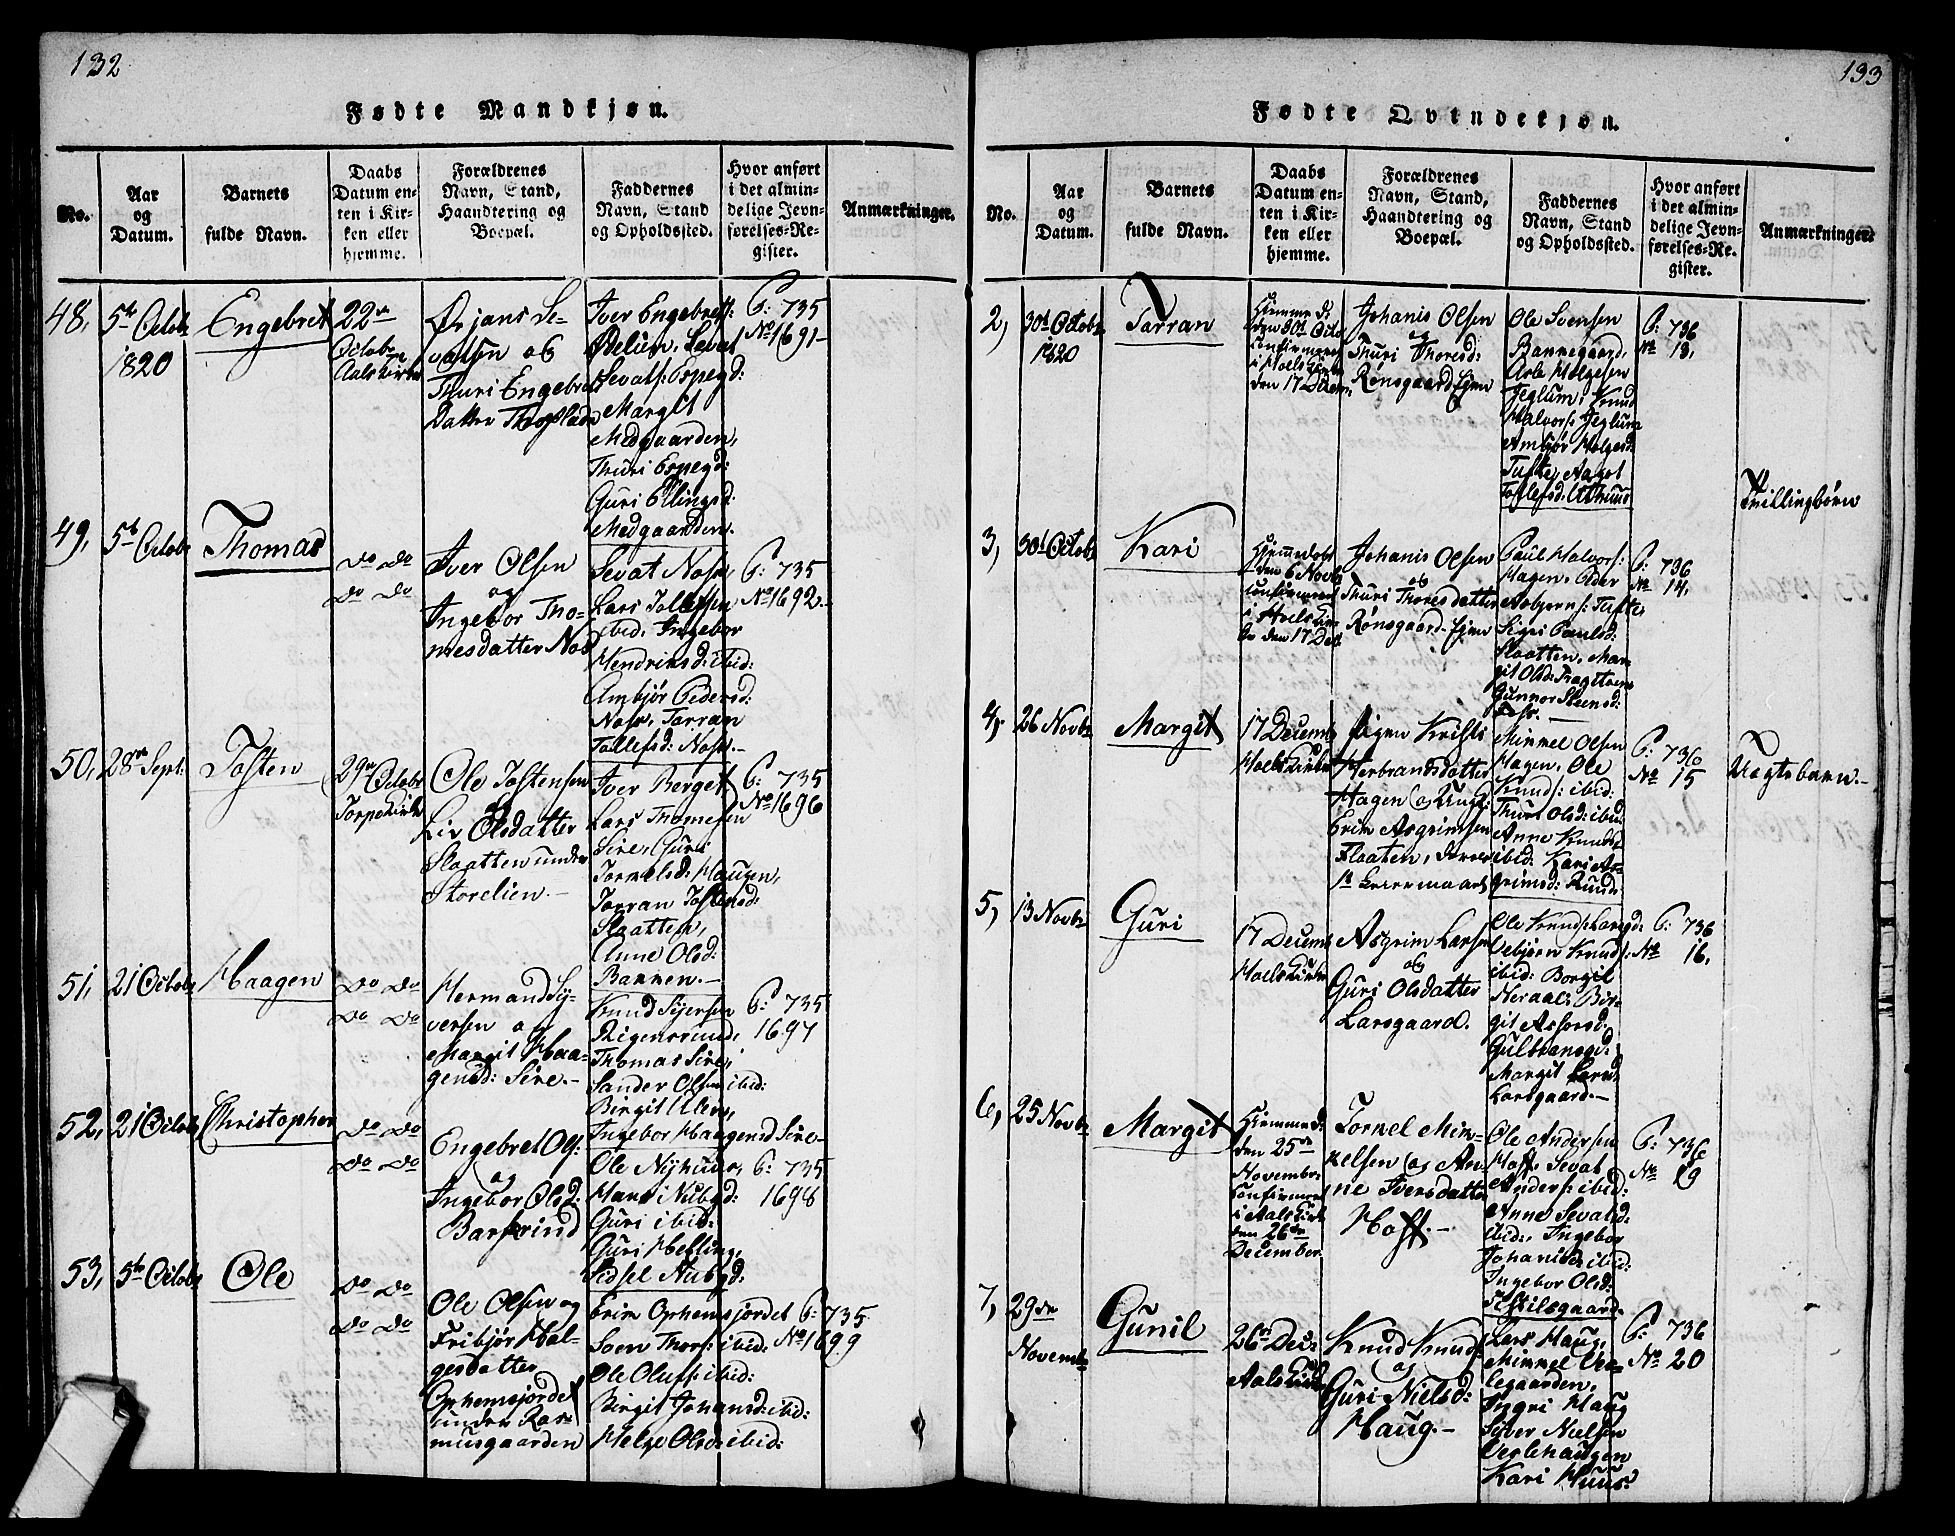 132
Fødte Mandkjøn.
No.
Aar
og
Datum.
Barnets
fulde Navn.
Daabs
Datum en-
ten i Kir-
ken eller
hjemme.
Forældrenes
Navn, Stand,
Haandtering og
Boepæl.
Faddernes
Navn, Stand
og Opholdssted.
Hvor anført
i det almin-
delige Jevn-
førelses-Re-
gister.
Anmærkninger.
48,
5te Octobr
1820
Engebret
22de
Octobr
Aals Kirke
Ørjans Se-
vatsen og
Thuri Engebrets
Datter
Iver Engebrets:
Ødelien, Sevat
Sevats: Espegd:
Margit
Medgaarden,
Thuri Espegd:
Guri Ellingsd:
Medgaarden.
P: 735
No 1691
49,
5te Octobr
Thomas
Do Do
Do Do
Iver Olsen
og
Ingebor Tho-
mesdatter Nos
Sevat Nose,
Lars Tollefsen
ibid, Ingebor
Hendrichsd: ibid:
Ambjør Pedersd:
Nose, Torran
Tollefsd: Nose.
P: 735
No 1692
50,
28de Sept:
Tosten
29de Octobr
Torpe Kirke
Ole Tostensen
og
Liv Olsdatter
Slaatten under
Storelien.
Iver Berget
Lars Thomesen
Sire, Guri
Tormelsd: Haugen,
Torran Tostensd:
Slaatten,
Anne Olsd:
Bakken.
P: 735
No 1696
51,
21 Octobr
Haagen
Do Do
Do Do
Herman Sy-
versen og
Margit Haa-
gensd: Sire.
Knud Syversen
Thomas Sire,
Sander Olsen ibid:
Birgit
Ingebor Haagensd Sire
P: 735
1697
52,
21 Octobr
Christopher
Do Do
Do Do
Engebret Ols:
og
Ingebor Olsd:
Ole Nyhuus,
Hans Nubgd:
Guri ibid:
Guri Helling,
Sidsel Nubgd:
P: 735
1698
53,
5te Octobr
Ole
Do Do
Do Do
Ole Olsen og
Fribjør Hal-
gesdatter
Ophemsjordet
under Ras-
musgaarden
Erik Ophemsjordet
Sven Thors: ibid:
Ole Olufs: ibid:
Birgit Johansd: ibid:
Helge Olsd: ibid:
P: 735
No 1699
133
Fødte Qvindekjøn.
No.
Aar
og
Datum.
Barnets
fulde Navn.
Daabs
Datum en-
ten i Kir-
ken eller
hjemme.
Forældrenes
Navn, Stand,
Haandtering og
Boepæl.
Faddernes
Navn, Stand
og Opholdssted.
Hvor anført
i det almin-
delige Jevn-
førelses-Re-
gister.
Anmærkninger.
2,
30te Octobr
1820
Torran
Hjemme d:
den 30te Octo
confirmeret
i Hoels Kirke
den 17 Decem
Johanis Olsen
og
Thuri Thoresd:
Rønsgaard Ejen
Ole Svensen
Bakkegaard,
Asle Helgesen
Jeglum, Knud
Halvors: Jeglum
Ambjør Helgesd:
Tufte, Aagot
Tollefsd:
P: 736
No 13,
Tvillingbørn
3,
30te Octobr
Kari
Hjemmedøbt
den 6 Novbr
confirmeret
i Hoels Kir-
ke den 17 Dec
Johanis Olsen
og
Thuri Thoresdatter
Rønsgaard Ejen
Paul Halvors:
Hagen, Peder
Asbjørns: Tufte,
Sigri Paulsd:
Slaatten, Mar-
git Olsd:
Gunnor Steensd:
P: 736
No 14,
4,
26 Novbr
Margit
17 Decemb
Hoels Kirke
Pigen Kristi
Herbrandsdatter
Hagen og Ungk:
Erik Asgrimsen
Slaaten,
1te Leiermaal
Mikkel Olsen
Hagen, Ole
Knuds: ibid:
Thuri Olsd: ibid
Anne Knuds
ibid: Kari As-
grimsd: Ruud
P: 736
No 15
Uægtebarn.
5,
13 Novbr
Guri
17 Decemb
Hoels Kirke
Asgrim Larsen
og
Guri Olsdatter
Larsgaard.
Ole Knuds: Larsgd:
Vebjørn Knuds:
ibid: Borgil
Neraal, Bir-
git Asforsd:
Gulbransgd:
Margit Larsd:
Larsgaard.
P: 736
No 16,
6,
25 Novbr
Margit
Hjemme d:
den 25de
November
confirmeret
i Aals Kirke
den 26de
December.
Torkel Mik-
kelsen og An-
ne Iversdatter
Hoft.
Ole Andersen
Hoft, Sevat
Anders: ibid:
Anne Sevatsd:
ibid:, Ingebor
Johanisd: ibid:
Ingebor Olsd:
Ketilsgaard.
P: 736
No 19
7,
29de
Novembr
Gunil
26de Dec:
Aals Kirke
Knud Knuds:
og
Guri Nielsd:
Haug.
Lars Haug,
Mikkel Ve-
legaarden,
Ingri Haug
Siver Nielsen
Veslehaugen
Kari Huus:
P: 736
No 20